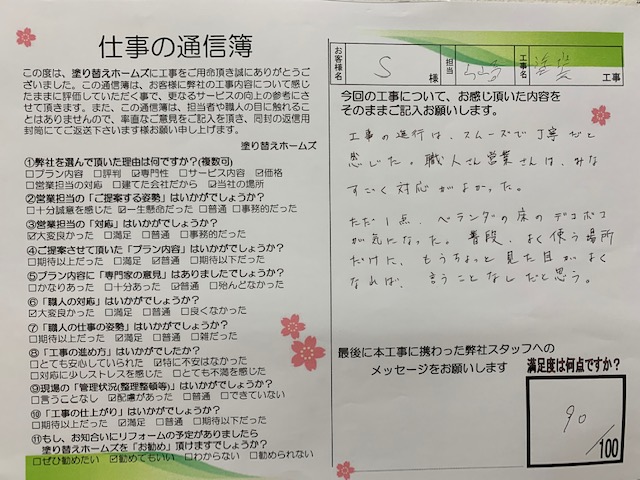 仕事の通信簿
この度は、塗り替えホームズに工事をご用命頂き誠にありがとうご
ざいました。この通信簿は、お客様に弊社の工事内容について感じ
たままに評価していただく事で、更なるサービスの向上の参考にさ
せて頂きます。また、この通信簿は、担当者や職人の目に触れるこ
とはありませんので、率直なご意見をご記入を頂き、同封の返信用
封筒にてご返送下さいます様お願い申し上げます。
塗り替えホームズ
①弊社を選んで頂いた理由は何ですか?(複数可)
□プラン内容 □評判 ☑専門性 □サービス内容 ☑価格
□営業担当の対応 □建てた会社だから ☑当社の場所
②営業担当の「ご提案する姿勢」はいかがでしょうか?
□十分誠意を感じた ☑一生懸命だった □普通 □事務的だった
③営業担当の「対応」はいかがでしょうか?
☑大変良かった □満足 □普通 □事務的だった
④ご提案させて頂いた「プラン内容」はいかがでしょうか?
□期待以上だった □満足 ☑普通 □期待以下だった
⑤プラン内容に「専門家の意見」はありましたでしょうか?
□かなりあった □十分あった ☑普通 □殆んどなかった
⑥「職人の対応」はいかがでしょうか?
☑大変良かった □満足 □普通 □良くなかった
⑦「職人の仕事の姿勢」はいかがでしょうか?
□期待以上だった ☑満足 □普通 □雑だった
⑧「工事の進め方」はいかがでしたか?
□とても安心していられた ☑特に不安はなかった
□対応に少しストレスを感じた □とても不満を感じた
⑨現場の「管理状況(整理整頓等)」はいかがでしょうか?
□言うことなし ☑配慮があった □普通 □できていない
⑩「工事の仕上がり」はいかがでしょうか?
□期待以上だった ☑満足 □普通 □期待以下だった
⑪もし、お知合いにリフォームの予定がありましたら
塗り替えホームズを「お勧め」頂けますでしょうか?
□ぜひ勧めたい ☑勧めてもいい □わからない □勧められない
お客様名 S 様 担当 山﨑 工事名 塗装 工事
今回の工事について、お感じ頂いた内容を
そのままご記入お願いします。
工事の進行は、スムーズで丁寧だと
感じた。職人さん営業さんは、みな
すごく対応がよかった。
ただ1点、ベランダの床のデコボコ
が気になった。普段、よく使う場所
だけに、もうちょっと見た目がよく
なれば、言うことなしだと思う。
最後に本工事に携わった弊社スタッフへの
メッセージをお願いします
満足度は何点ですか?
90
/100